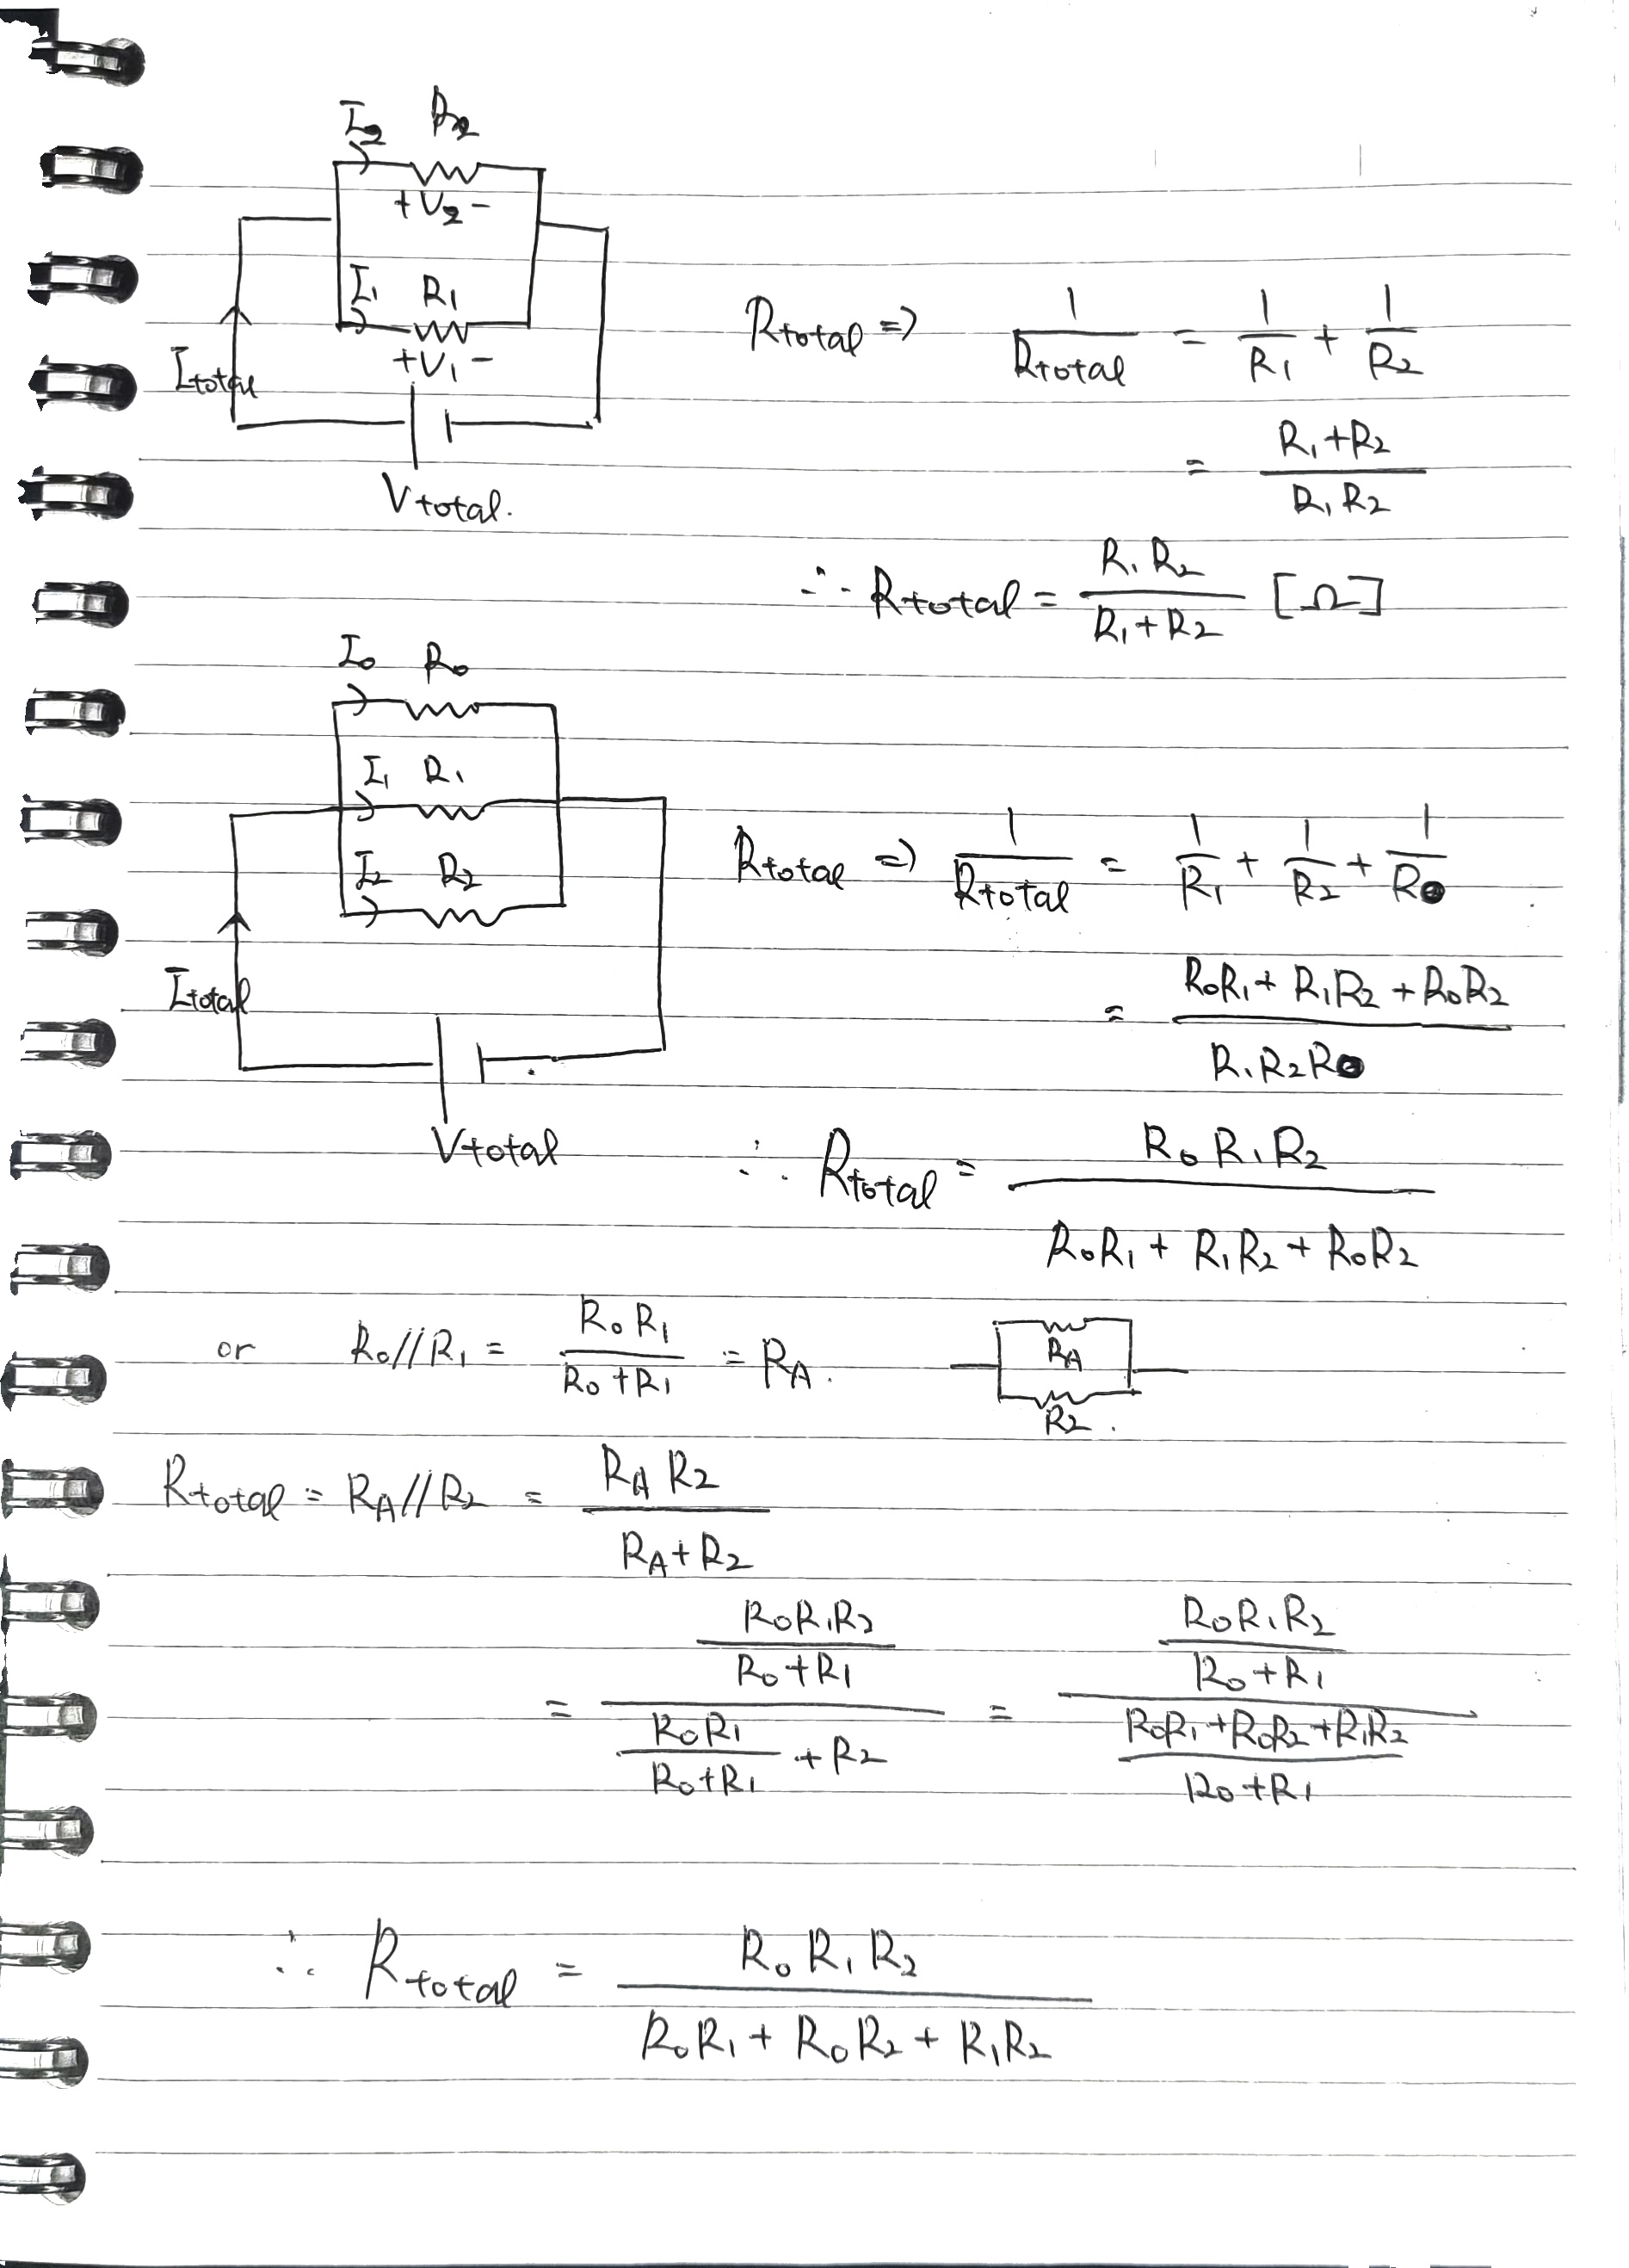 I₂ R₂
+ V₂ -
I₁ R₁
+ V₁ -
Itotal
Vtotal.
Rtotal ⇒ 1/Rtotal = 1/R₁ + 1/R₂
= (R₁+R₂)/(R₁R₂)
∴ Rtotal = (R₁R₂)/(R₁+R₂) [Ω]
I₀ R₀
I₁ R₁
I₂ R₂
Itotal
Vtotal
Rtotal ⇒ 1/Rtotal = 1/R₁ + 1/R₂ + 1/R₀
= (R₀R₁ + R₁R₂ + R₀R₂)/(R₁R₂R₀)
∴ Rtotal = (R₀R₁R₂)/(R₀R₁ + R₁R₂ + R₀R₂)
or R₀//R₁ = (R₀R₁)/(R₀+R₁) = R_A.
R_A
R₂.
Rtotal = R_A//R₂ = (R_A R₂)/(R_A+R₂)
= ((R₀R₁R₂)/(R₀+R₁))/((R₀R₁)/(R₀+R₁) + R₂) = ((R₀R₁R₂)/(R₀+R₁))/((R₀R₁+R₀R₂+R₁R₂)/(R₀+R₁))
∴ Rtotal = (R₀R₁R₂)/(R₀R₁ + R₀R₂ + R₁R₂)